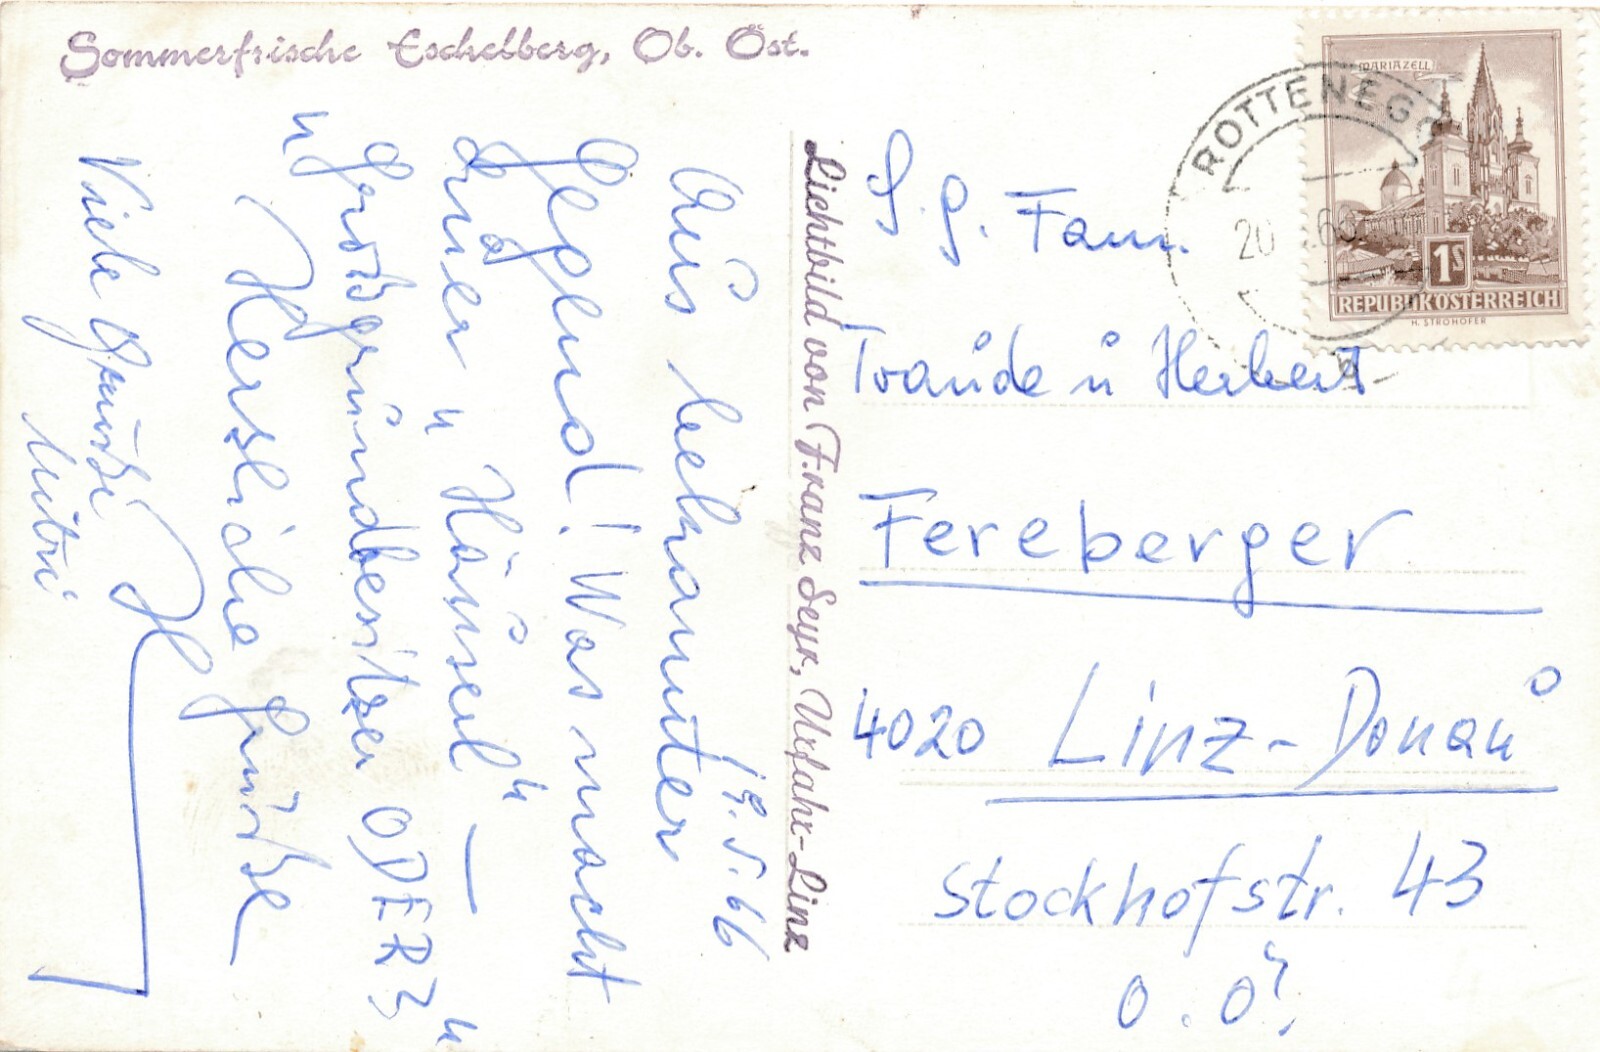 Sommerfrische Eschelberg, Ob. Öst.
19.5.66
Aus bekannter
Gegend! Was macht
Euer "Häusel" –
"Großgrundbesitzer ODER?"
Herzliche Grüße
H
Viele Grüße
Mutti
Lichtbild von Franz Seyr, Urfahr-Linz
ROTTENEGG
20 66
MARIAZELL
1S
REPUBLIK ÖSTERREICH
H. STROHOFER
S. g. Fam.
Traude u Herbert
Fereberger
4020 Linz-Donau
Stockhofstr. 43
O.Ö.